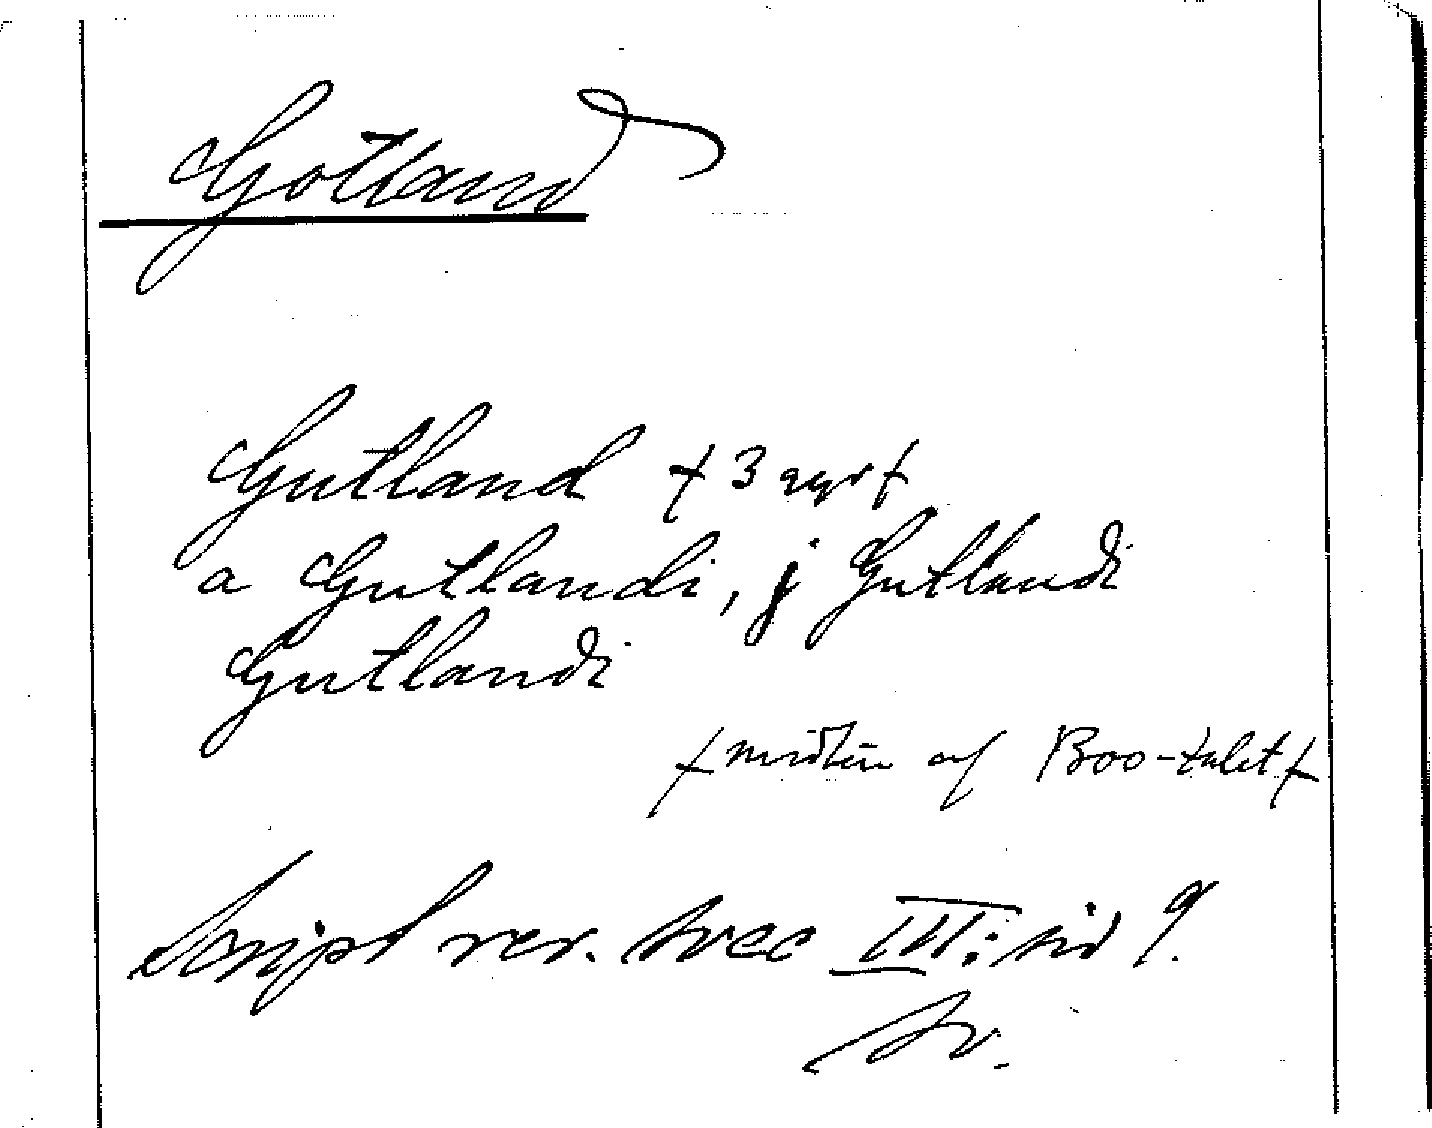 Gotland
Gutland + 3 ggr +
a Gutlandi, j Gutlandi
Gutlandi
+ mitten af 1300-talet +
Script rer. svec III: sid 9.
Sv.